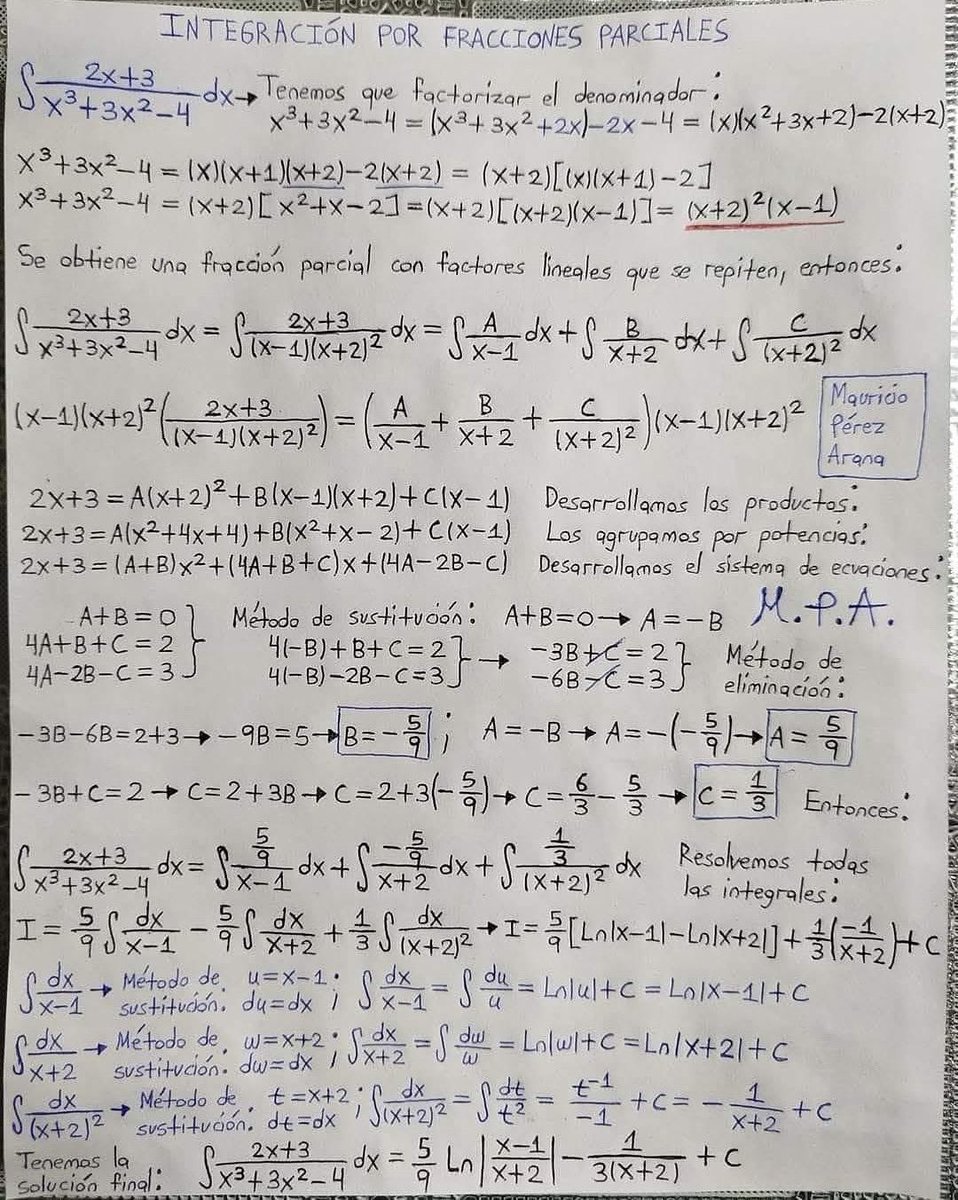 INTEGRACIÓN POR FRACCIONES PARCIALES
∫ (2x+3)/(x³+3x²-4) dx → Tenemos que factorizar el denominador:
x³+3x²-4 = (x³+3x²+2x)-2x-4 = (x)(x²+3x+2)-2(x+2)
x³+3x²-4 = (x)(x+1)(x+2)-2(x+2) = (x+2)[(x)(x+1)-2]
x³+3x²-4 = (x+2)[x²+x-2] = (x+2)[(x+2)(x-1)] = (x+2)²(x-1)
Se obtiene una fracción parcial con factores lineales que se repiten, entonces:
∫ (2x+3)/(x³+3x²-4) dx = ∫ (2x+3)/((x-1)(x+2)²) dx = ∫ A/(x-1) dx + ∫ B/(x+2) dx + ∫ C/(x+2)² dx
(x-1)(x+2)² ((2x+3)/((x-1)(x+2)²)) = (A/(x-1) + B/(x+2) + C/(x+2)²)(x-1)(x+2)²
Mauricio
Pérez
Arana
2x+3 = A(x+2)²+B(x-1)(x+2)+C(x-1) Desarrollamos los productos:
2x+3 = A(x²+4x+4)+B(x²+x-2)+C(x-1) Los agrupamos por potencias:
2x+3 = (A+B)x²+(4A+B+C)x+(4A-2B-C) Desarrollamos el sistema de ecuaciones:
A+B=0 } Método de sustitución: A+B=0 → A=-B M.P.A.
4A+B+C=2 4(-B)+B+C=2 } → -3B+C=2 } Método de
4A-2B-C=3 4(-B)-2B-C=3 -6B-C=3 eliminación:
-3B-6B=2+3 → -9B=5 → B=-5/9 ; A=-B → A=-(-5/9) → A=5/9
-3B+C=2 → C=2+3B → C=2+3(-5/9) → C=6/3-5/3 → C=1/3 Entonces:
∫ (2x+3)/(x³+3x²-4) dx = ∫ (5/9)/(x-1) dx + ∫ (-5/9)/(x+2) dx + ∫ (1/3)/(x+2)² dx Resolvemos todas
las integrales:
I = 5/9 ∫ dx/(x-1) - 5/9 ∫ dx/(x+2) + 1/3 ∫ dx/(x+2)² → I = 5/9 [Ln|x-1|-Ln|x+2|] + 1/3 (-1/(x+2)) + C
∫ dx/(x-1) → Método de sustitución. u=x-1 du=dx ; ∫ dx/(x-1) = ∫ du/u = Ln|u|+C = Ln|x-1|+C
∫ dx/(x+2) → Método de sustitución. w=x+2 dw=dx ; ∫ dx/(x+2) = ∫ dw/w = Ln|w|+C = Ln|x+2|+C
∫ dx/(x+2)² → Método de sustitución. t=x+2 dt=dx ; ∫ dx/(x+2)² = ∫ dt/t² = t⁻¹/-1 +C = -1/(x+2) + C
Tenemos la
solución final: ∫ (2x+3)/(x³+3x²-4) dx = 5/9 Ln|(x-1)/(x+2)| - 1/(3(x+2)) + C